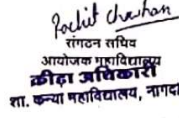 Rachit Chouhan
संगठन सचिव
आयोजक महाविद्यालय
क्रीड़ा अधिकारी
शा. कन्या महाविद्यालय, नागदा